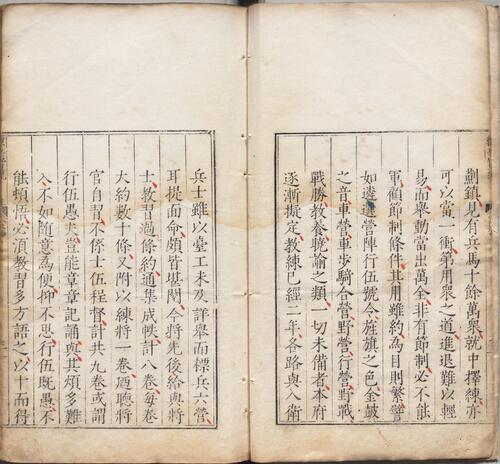 薊鎮見有兵馬十餘萬衆就中擇練亦
可以當一衝第用衆之道進退難以輕
易而舉動當出萬全非有節制必不能
軍顧節制條件其用雖約爲目則繁譬
如遴選營陣行伍號令旌旗之色金鼓
之音車營車步騎合營野營行營野戰
戰勝教養曉諭之類一切未備者本府
逐漸擬定教練已經二年各路與入衛
兵士雖以臺工未及詳舉而標兵六營
耳提面命頗皆堪閱今將先後給與將
士教習過條約通集成帙計八卷每卷
大約數十條又附以練將一卷廼聽將
官自習不係士伍程督計共九卷或謂
行伍愚夫豈能章章記誦與其煩多難
入不如隨意為便抑不思行伍既愚不
能頓悟必須教習多方語之以十而得